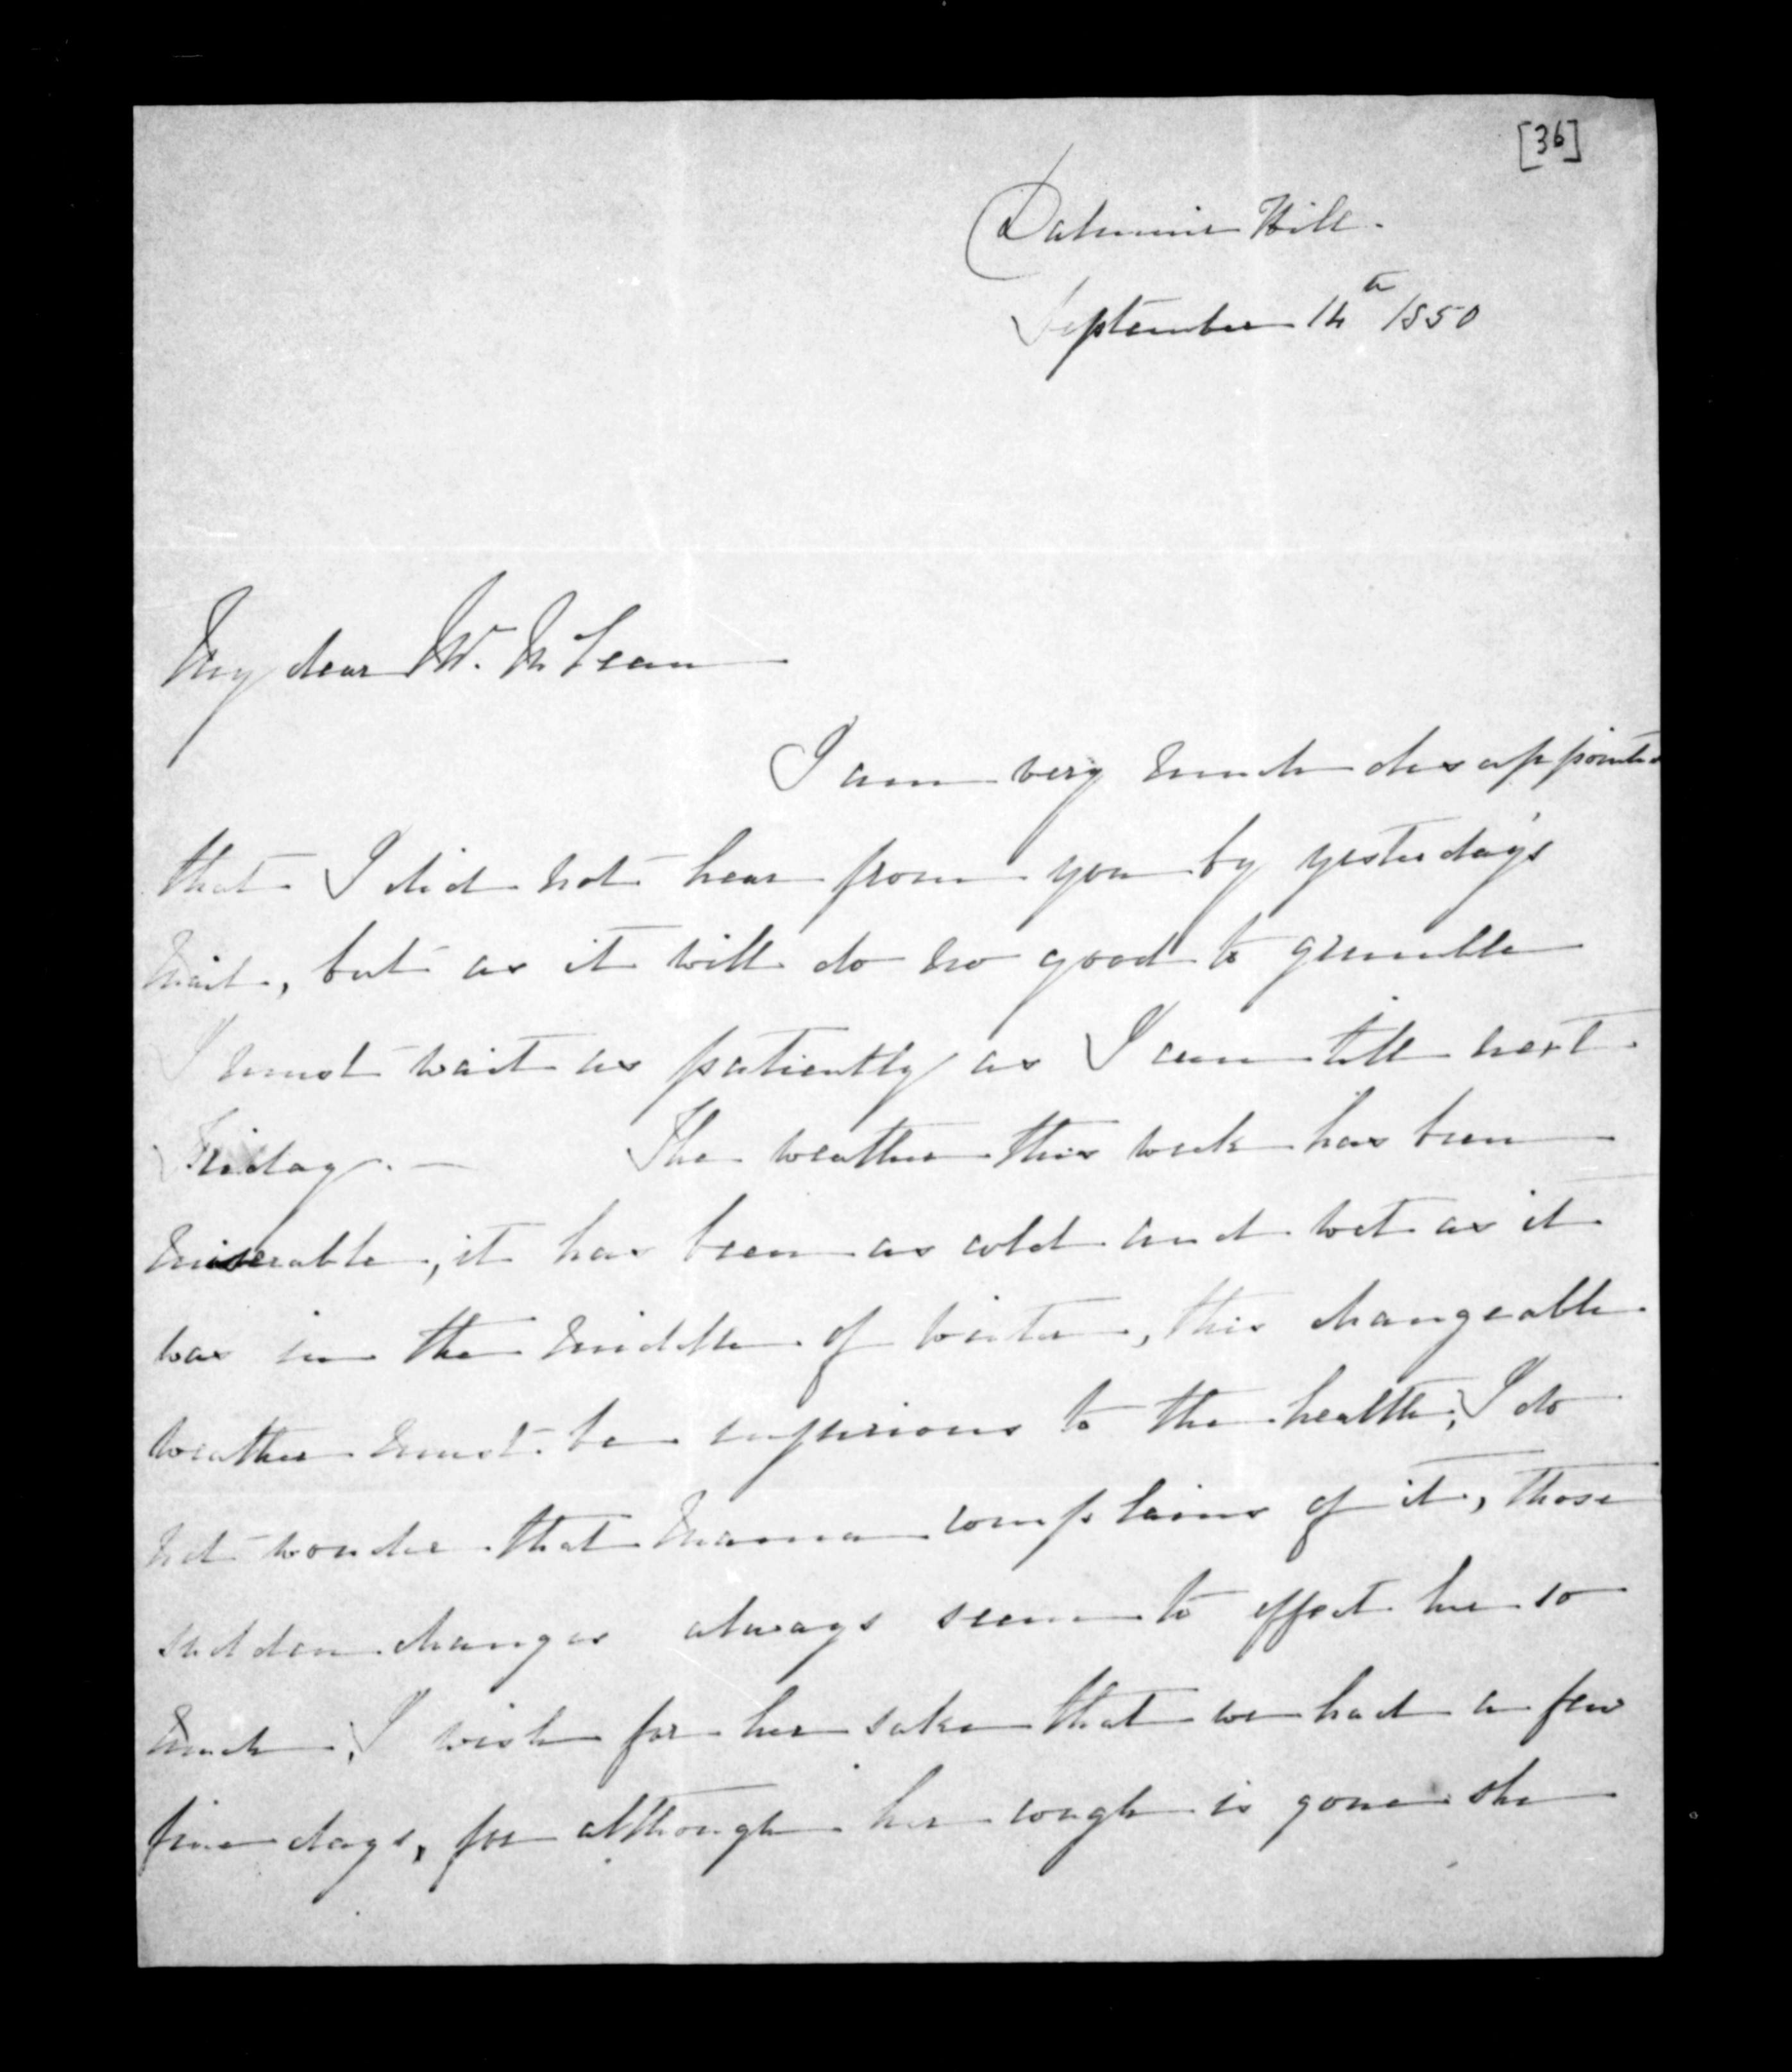 [36]
Dalmuir Hill.
September 14th 1850
My dear Mr. McLean
I am very much disappointed
that I did not hear from you by yesterday's
mail, but as it will do no good to grumble
I must wait as patiently as I can till next
Friday. — The weather this week has been
miserable, it has been as cold and wet as it
was in the middle of winter, this changeable
weather must be injurious to the health, I do
not wonder that Mama complains of it, those
sudden changes always seem to effect her so
much, I wish for her sake that we had a few
fine days, for although her cough is gone she